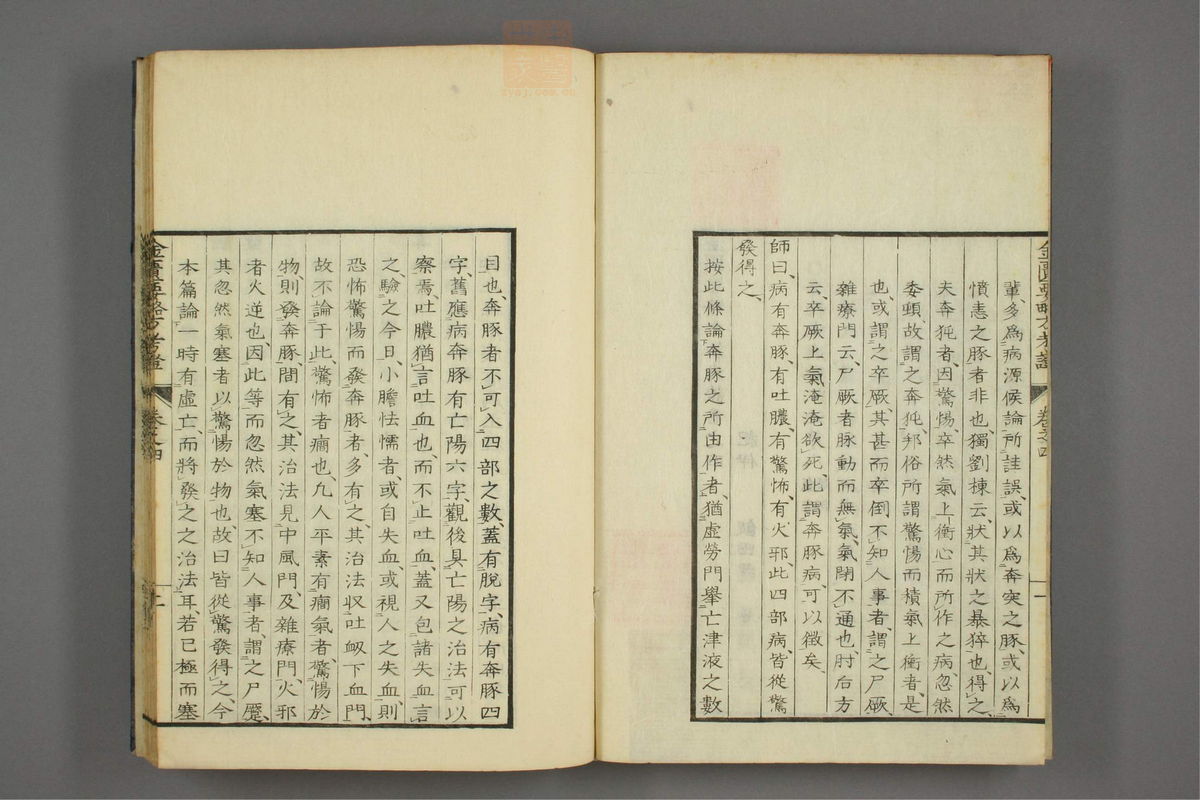 金匱要略方考證 卷之四 一
輩、多爲病源候論所詿誤、或以爲奔突之豚、或以爲
憤恚之豚者非也、獨劉棟云、狀其狀之暴猝也、得之、
夫奔㹠者、因驚惕、卒然氣上衝心而所作之病、忽然
委頓、故謂之奔㹠、邦俗所謂驚惕而積氣上衝者是
也、或謂之卒厥、其甚而卒倒不知人事者、謂之尸厥、
雜療門云、尸厥者脉動而無氣、氣閉不通也、肘后方
云、卒厥上氣淹淹欲死、此謂奔豚病、可以徵矣、
師曰、病有奔豚、有吐膿、有驚怖、有火邪、此四部病、皆從驚
發得之、
按此條論奔豚之所由作者、猶虛勞門舉亡津液之數
目也、奔豚者不可入四部之數、蓋有脫字、病有奔豚四
字、舊應病奔豚有亡陽六字、觀後具亡陽之治法可以
察焉、吐膿猶言吐血也、而不止吐血、蓋又包諸失血言
之、驗之今日、小膽怯懦者、或自失血、或視人之失血、則
恐怖驚惕而發奔豚者、多有之、其治法収吐衂下血門、
故不論于此、驚怖者癎也、凢人平素有癎氣者、驚惕於
物、則發奔豚、間有之、其治法見中風門、及雜療門、火邪
者火逆也、因此等而忽然氣塞不知人事者、謂之尸蹷、
其忽然氣塞者以驚惕於物也、故曰皆從驚發得之、今
本篇論一時有虛亡、而將發之之治法耳、若已極而塞
金匱要略方考證 卷之四